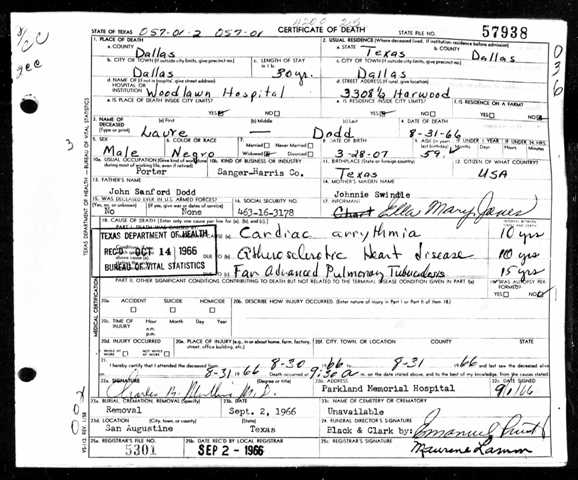 STATE OF TEXAS 057-01-2 057-01 CERTIFICATE OF DEATH STATE FILE NO. 57938
1. PLACE OF DEATH
a. COUNTY
Dallas
2. USUAL RESIDENCE (Where deceased lived. If institution: residence before admission)
a. STATE Texas
b. COUNTY Dallas
b. CITY OR TOWN (If outside city limits, give precinct no.)
Dallas
c. LENGTH OF STAY in 1 b
30 yrs.
c. CITY OR TOWN (If outside city limits, give precinct no.)
Dallas
d. NAME OF (If not in hospital, give street address)
HOSPITAL OR
INSTITUTION Woodlawn Hospital
d. STREET ADDRESS (If rural, give location)
3308½ Harwood
e. IS PLACE OF DEATH INSIDE CITY LIMITS?
YES NO
e. IS RESIDENCE INSIDE CITY LIMITS?
YES NO
f. IS RESIDENCE ON A FARM?
YES NO
3. NAME OF DECEASED
(Type or print)
(a) First (b) Middle (c) Last
Laure — Dodd
4. DATE OF DEATH
8-31-66
5. SEX
Male
6. COLOR OR RACE
Negro
7. Married Never Married
Widowed Divorced
8. DATE OF BIRTH
3-28-07
9. AGE (In years
59
IF UNDER 1 YEAR
IF UNDER 24 HRS.
10a. USUAL OCCUPATION (Give kind of work done
Porter
10b. KIND OF BUSINESS OR INDUSTRY
Sanger-Harris Co.
11. BIRTHPLACE (State or foreign country)
Texas
12. CITIZEN OF WHAT COUNTRY?
USA
13. FATHER'S NAME
John Sanford Dodd
14. MOTHER'S MAIDEN NAME
Johnnie Swindle
15. WAS DECEASED EVER IN U.S. ARMED FORCES?
(Yes, no, or unknown)
No None
16. SOCIAL SECURITY NO.
463-16-3178
17. INFORMANT
Chart Ella Mary Jones
18. CAUSE OF DEATH [Enter only one cause per line for
Cardiac arrythmia 10 yrs
TEXAS DEPARTMENT OF HEALTH
REC'D OCT 14 1966
BUREAU OF VITAL STATISTICS
DUE TO
Far Advanced Pulmonary 15 yrs
PART II. OTHER SIGNIFICANT CONDITIONS CONTRIBUTING TO DEATH BUT NOT RELATED TO THE TERMINAL DISEASE CONDITION GIVEN IN PART I
19. WAS AUTOPSY PERFORMED?
YES NO
20a. ACCIDENT SUICIDE HOMICIDE
20b. DESCRIBE HOW INJURY OCCURRED. (Enter nature of injury in Part I or Part II of item 18.)
20c. TIME OF INJURY
Hour Month Day Year
a.m.
p.m.
20d. INJURY OCCURRED
WHILE AT WORK NOT WHILE AT WORK
20e. PLACE OF INJURY (e.g. in or about home, farm, factory, street, office building, etc.)
20f. CITY, TOWN, OR LOCATION COUNTY STATE
21. I hereby certify that I attended the deceased from 8-30 66 to 8-31 66 and last saw the deceased alive
8-31 66 Death occurred at 9:30 a m. on the date stated above, and to the best of my knowledge, from the causes stated.
22a. SIGNATURE (Degree or title)
Charles B. Mullins M.D.
22b. ADDRESS
Parkland Memorial Hospital
22c. DATE SIGNED
9/1/66
23a. BURIAL, CREMATION, REMOVAL (Specify)
Removal
23b. DATE
Sept. 2, 1966
23c. NAME OF CEMETERY OR CREMATORY
Unavailable
23d. LOCATION (City, town, or county) (State)
San Augustine Texas
24. FUNERAL DIRECTOR'S SIGNATURE
Black & Clark by:
25a. REGISTRAR'S FILE NO.
5301
25b. DATE REC'D BY LOCAL REGISTRAR
SEP 2 - 1966
25c. REGISTRAR'S SIGNATURE
TEXAS DEPARTMENT OF HEALTH — BUREAU OF VITAL STATISTICS
MEDICAL CERTIFICATION